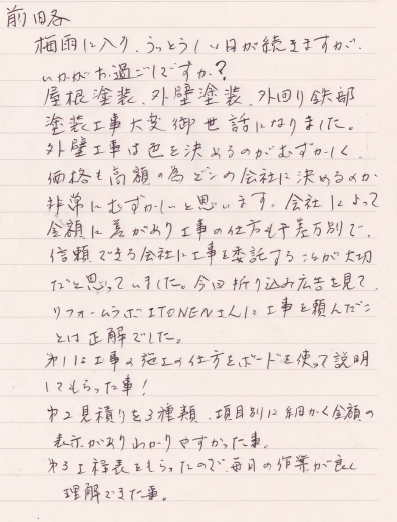 前略
梅雨に入り、うっとうしい日が続きますが、
いかがお過ごしですか？
屋根塗装、外壁塗装、外回り鉄部
塗装工事大変御世話になりました。
外壁工事は色を決めるのがむずかしく
価格も高額の為どこの会社に決めるのか
非常にむずかしいと思います。会社によって
金額に差があり工事の仕方も千差万別で、
信頼できる会社に工事を委託することが大切
だと思っていました。今回折り込み広告を見て
リフォームラボITONENさんに工事を頼んだこ
とは正解でした。
第1は工事の施工の仕方をボードを使って説明
してもらった事！
第2見積りを3種類、項目別に細かく金額の
表示がありわかりやすかった事。
第3工程表をもらったので、毎日の作業が良く
理解できた事。